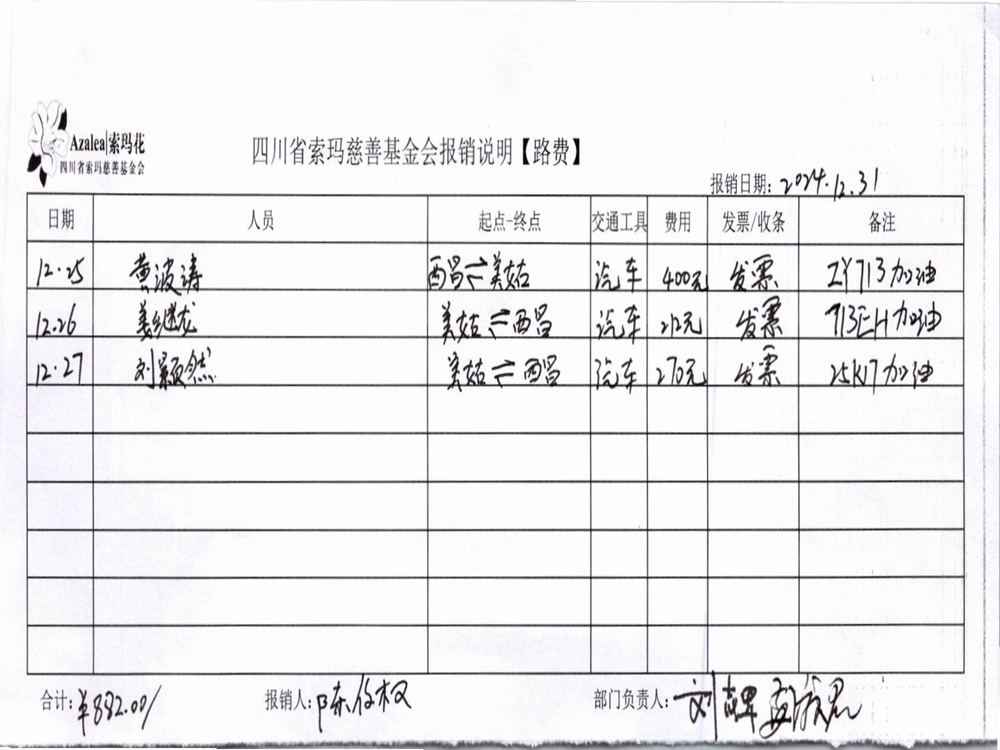 Azalea|索玛花
四川省索玛慈善基金会
四川省索玛慈善基金会报销说明【路费】
报销日期: 2024.12.31
日期 人员 起点-终点 交通工具 费用 发票/收条 备注
12.25 黄波涛 西昌⇌美姑 汽车 400元 发票 ZY713加油
12.26 姜继龙 美姑⇌西昌 汽车 212元 发票 713EH加油
12.27 刘颖然 美姑⇌西昌 汽车 270元 发票 25K17加油
合计: ¥882.00/ 报销人: 陈俊权 部门负责人: 刘